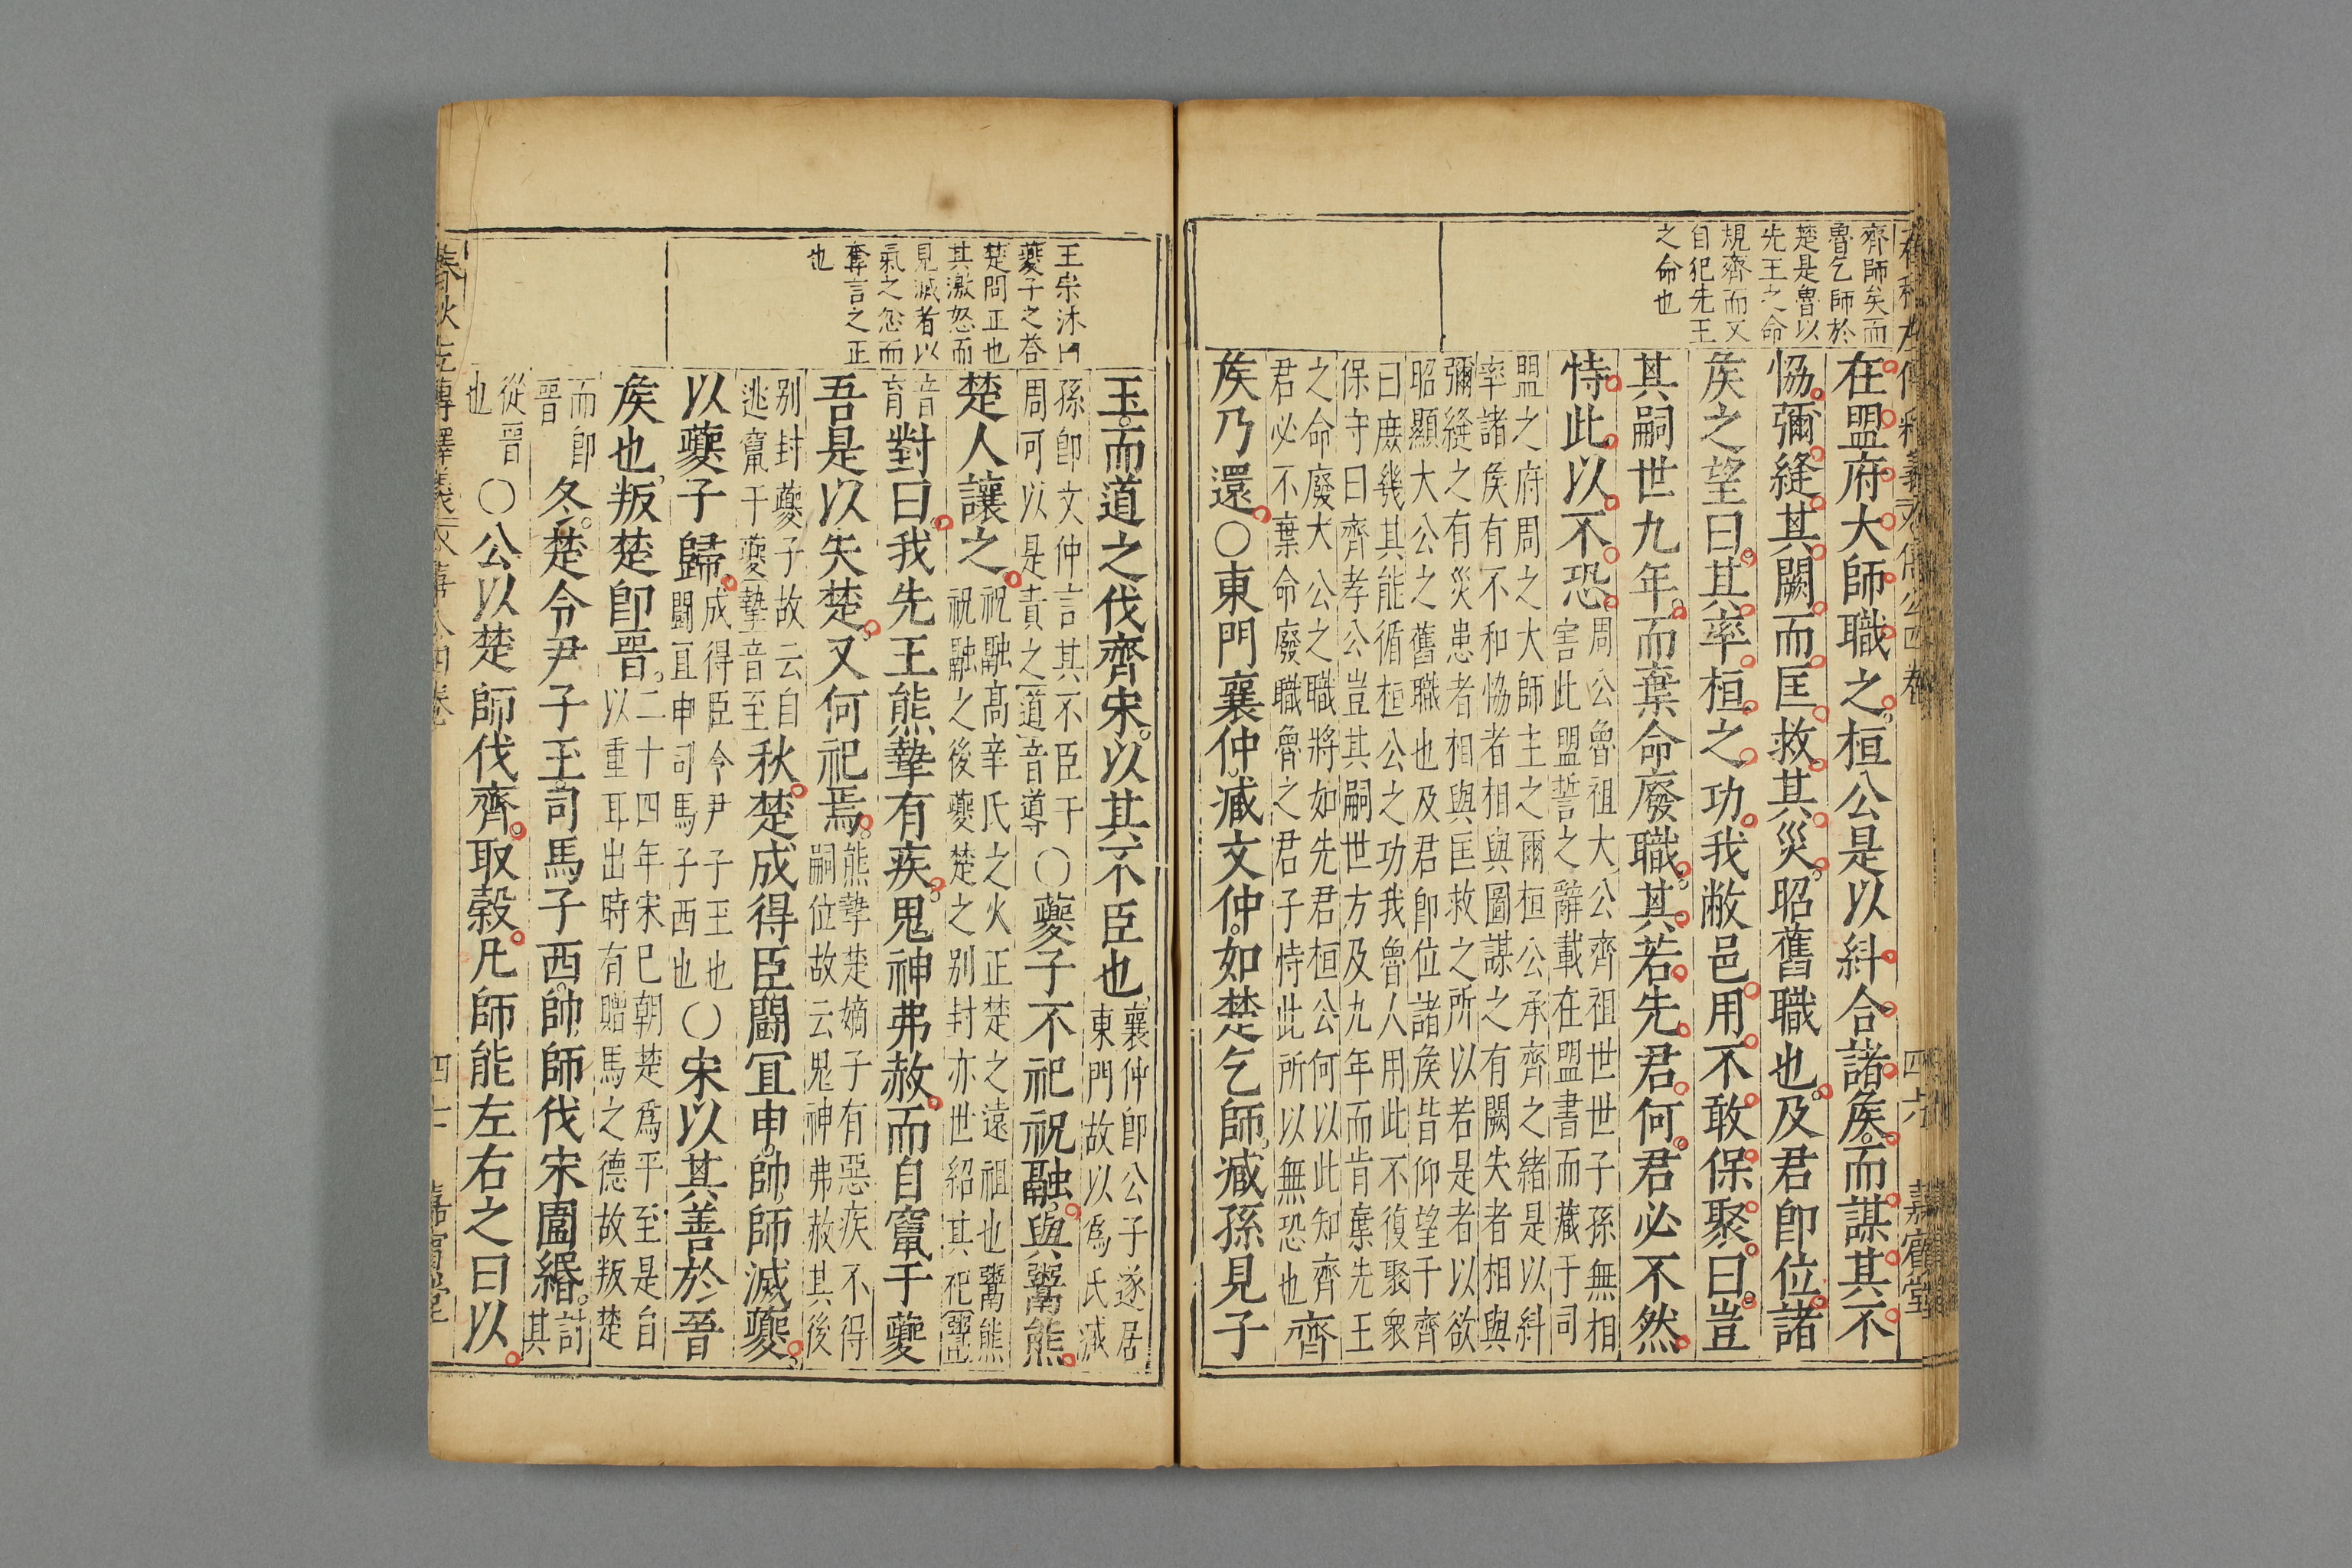 齊師矣而
魯乞師於
楚是魯以
先王之命
規齊而又
自犯先王
之命也
在盟府大師職之桓公是以糾合諸矦而謀其不
恊彌縫其闕而匡救其災昭舊職也及君卽位諸
矦之望曰其率桓之功我敝邑用不敢保聚曰豈
其嗣世九年而棄命廢職其若先君何君必不然
恃此以不恐
周公魯祖大公齊祖世世子孫無相
害此盟誓之辭載在盟書而藏于司
盟之府周之大師主之爾桓公承齊之緒是以糾
率諸矦有不和恊者相與圖謀之有闕失者相與
彌縫之有災患者相與匡救之所以若是者以欲
昭顯大公之舊職也及君卽位諸矦皆仰望于齊
曰庻幾其能循桓公之功我魯人用此不復聚衆
保守曰齊孝公豈其嗣世方及九年而肯棄先王
之命廢大公之職將如先君桓公何以此知齊
君必不棄命廢職魯之君子恃此所以無恐也
齊
矦乃還○東門襄仲臧文仲如楚乞師臧孫見子
王宗沐曰
夔子之荅
楚問正也
其激怒而
見滅者以
氣之忿而
奪言之正
也
玉而道之伐齊宋以其不臣也
襄仲卽公子遂居
東門故以爲氏臧
孫卽文仲言其不臣于
周可以是責之道音導
○夔子不祀祝融與鬻熊
楚人讓之
祝融高辛氏之火正楚之遠祖也鬻熊
祝融之後夔楚之別封亦世紹其祀鬻
音
育
對曰我先王熊摯有疾鬼神弗赦而自竄于夔
吾是以失楚又何祀焉
熊摯楚嫡子有惡疾不得
嗣位故云鬼神弗赦其後
別封夔子故云自
逃竄于夔摯音至
秋楚成得臣鬬宜申帥師滅夔
以夔子歸
成得臣令尹子玉也
鬬宜申司馬子西也
○宋以其善於晉
矦也叛楚卽晉
二十四年宋巳朝楚爲平至是自
以重耳出時有贈馬之德故叛楚
而卽
晉
冬楚令尹子玉司馬子西帥師伐宋圍緡
討
其
從晉
也
○公以楚師伐齊取穀凡師能左右之曰以